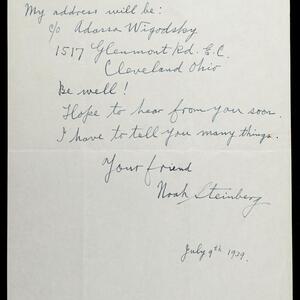 My address will be:
c/o Adassa Wigodsky
1517 Glenmont Rd. E.C.
Cleveland Ohio
Be well!
Hope to hear from you soon.
I have to tell you many things.
Your friend
Noah Steinberg
July 9th 1939.